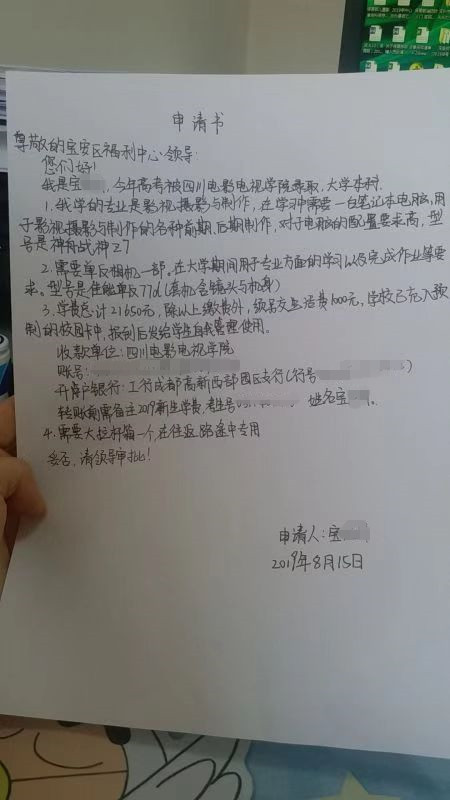 申请书
尊敬的宝安区福利中心领导:
您们好!
我是宝 ,今年高考被四川电影电视学院录取,大学本科.
1.我学的专业是影视摄影与制作,在学习中需要一台笔记本电脑,用
于影视摄影与制作的各种前期.后期制作,对于电脑的配置要求高,型
号是神舟战神Z7
2.需要单反相机一部,在大学期间用于专业方面的学习以及完成作业等要
求,型号是佳能单反77d(套机含镜头与机身)
3.学费总计21650元,除以上缴费外,须另交生活费1000元,学校已充入预
制的校园卡中,报到后发给学生自我管理使用。
收款单位:四川电影电视学院
账号:
开户银行:工行成都高新西部园区支行(行号 )
转账前需备注2019新生学费,考生号 姓名宝 。
4.需要大拉杆箱一个,在往返路途中专用
妥否,请领导审批!
申请人:宝
2019年8月15日